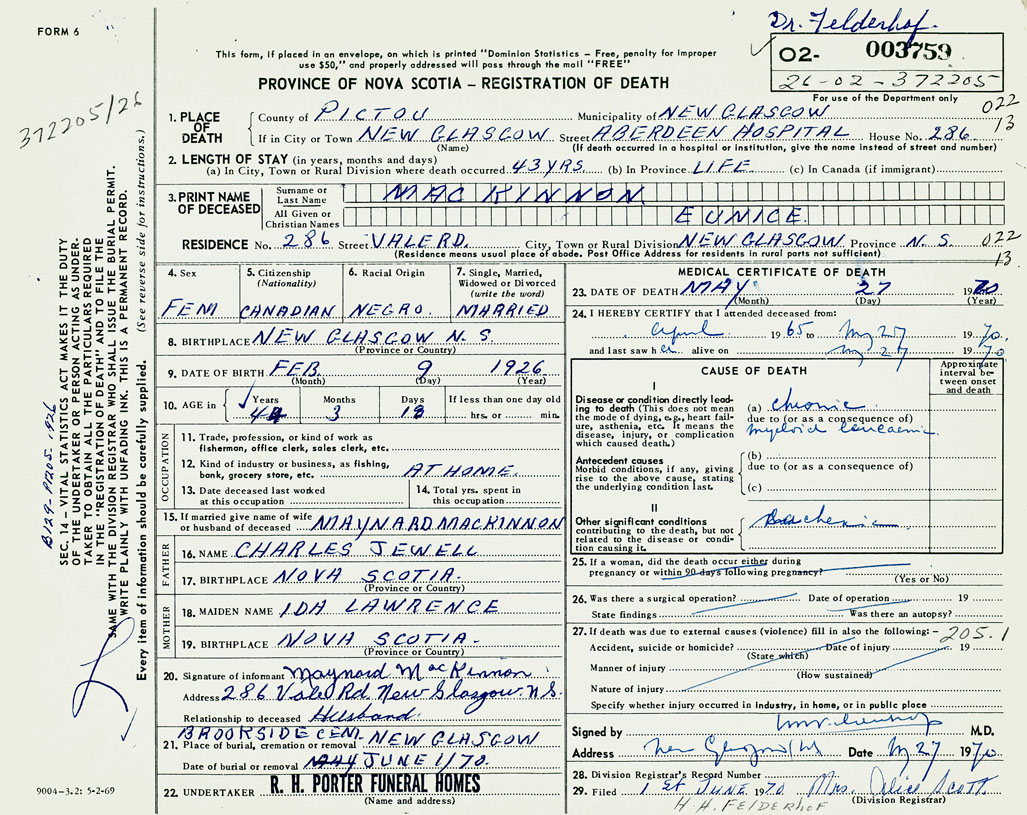 FORM 6
Dr. Felderhof.
This form, if placed in an envelope, on which is printed "Dominion Statistics – Free, penalty for improper
use $50," and properly addressed will pass through the mail "FREE"
O2- 003759
26-02-372205
For use of the Department only
PROVINCE OF NOVA SCOTIA – REGISTRATION OF DEATH
372205/26
022
13
1. PLACE OF DEATH
County of PICTOU Municipality of NEW GLASGOW
If in City or Town NEW GLASGOW Street ABERDEEN HOSPITAL House No. 286
(Name) (If death occurred in a hospital or institution, give the name instead of street and number)
2. LENGTH OF STAY (in years, months and days)
(a) In City, Town or Rural Division where death occurred 43 YRS. (b) In Province LIFE (c) In Canada (if immigrant)
3. PRINT NAME OF DECEASED
Surname or Last Name MAC KINNON
All Given or Christian Names EUNICE
RESIDENCE No. 286 Street VALE RD. City, Town or Rural Division NEW GLASGOW Province N. S.
(Residence means usual place of abode. Post Office Address for residents in rural parts not sufficient)
022
13
4. Sex
FEM
5. Citizenship
(Nationality)
CANADIAN
6. Racial Origin
NEGRO
7. Single, Married,
Widowed or Divorced
(write the word)
MARRIED
8. BIRTHPLACE NEW GLASGOW N. S.
(Province or Country)
9. DATE OF BIRTH FEB. 9 1926
(Month) (Day) (Year)
10. AGE in Years Months Days If less than one day old
44 3 18 hrs. or min.
OCCUPATION
11. Trade, profession, or kind of work as
fisherman, office clerk, sales clerk, etc.
12. Kind of industry or business, as fishing,
bank, grocery store, etc. AT HOME.
13. Date deceased last worked
at this occupation
14. Total yrs. spent in
this occupation
15. If married give name of wife
or husband of deceased MAYNARD MACKINNON
FATHER
16. NAME CHARLES JEWELL
17. BIRTHPLACE NOVA SCOTIA.
(Province or Country)
MOTHER
18. MAIDEN NAME IDA LAWRENCE
19. BIRTHPLACE NOVA SCOTIA.
(Province or Country)
20. Signature of informant Maynard MacKinnon
Address 286 Vale Rd. New Glasgow N.S.
Relationship to deceased Husband.
BROOKSIDE CEM.
21. Place of burial, cremation or removal NEW GLASGOW
Date of burial or removal MAY JUNE 1/70.
22. UNDERTAKER R. H. PORTER FUNERAL HOMES
(Name and address)
MEDICAL CERTIFICATE OF DEATH
23. DATE OF DEATH MAY 27 1970
(Month) (Day) (Year)
24. I HEREBY CERTIFY that I attended deceased from:
April 1965 to My 27 1970
and last saw her alive on my 27 1970
CAUSE OF DEATH
Approximate
interval be-
tween onset
and death
I
Disease or condition directly lead-
ing to death (This does not mean
the mode of dying, e.g., heart fail-
ure, asthenia, etc. It means the
disease, injury, or complication
which caused death.)
(a) chronic
due to (or as a consequence of)
myeloid leucaemia
Antecedent causes
Morbid conditions, if any, giving
rise to the above cause, stating
the underlying condition last.
(b)
due to (or as a consequence of)
(c)
II
Other significant conditions
contributing to the death, but not
related to the disease or condi-
tion causing it.
25. If a woman, did the death occur either during
pregnancy or within 90 days following pregnancy?
(Yes or No)
26. Was there a surgical operation? Date of operation 19
State findings Was there an autopsy?
27. If death was due to external causes (violence) fill in also the following: – 205.1
Accident, suicide or homicide? Date of injury 19
(State which)
Manner of injury
(How sustained)
Nature of injury
Specify whether injury occurred in industry, in home, or in public place
Signed by M.D.
Address New Glasgow NS Date My 27 1970
28. Division Registrar's Record Number
29. Filed 1st June 1970 Mrs. Alice Scott.
(Division Registrar)
H. H. FELDERHOF
B129-P1205. 1926
SEC. 14 – VITAL STATISTICS ACT MAKES IT THE DUTY
OF THE UNDERTAKER OR PERSON ACTING AS UNDER-
TAKER TO OBTAIN ALL THE PARTICULARS REQUIRED
IN THE "REGISTRATION OF DEATH" AND TO FILE THE
SAME WITH THE DIVISION REGISTRAR WHO SHALL ISSUE THE BURIAL PERMIT.
WRITE PLAINLY WITH UNFADING INK. THIS IS A PERMANENT RECORD.
Every item of information should be carefully supplied. (See reverse side for instructions.)
9004-3.2: 5-2-69